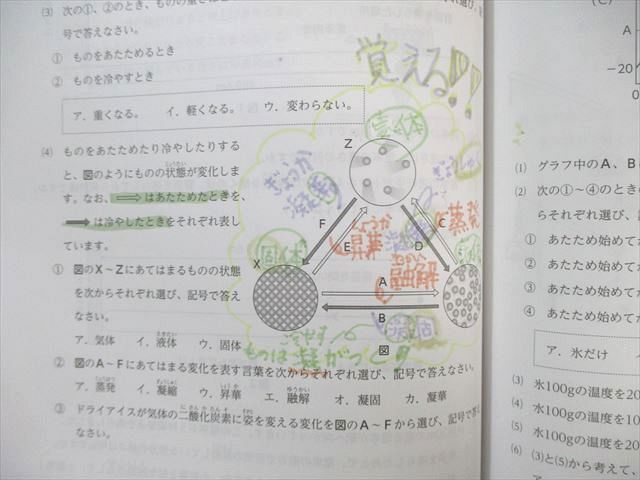 (3) 次の①,②のとき,ものの重さは
号で答えなさい。
① ものをあたためるとき
② ものを冷やすとき
ア.重くなる。 イ.軽くなる。 ウ.変わらない。
(4) ものをあたためたり冷やしたりする
と,図のようにものの状態が変化しま
す。なお,⇨はあたためたときを,
➡は冷やしたときをそれぞれ表し
ています。
① 図のX〜Zにあてはまるものの状態
を次からそれぞれ選び,記号で答え
なさい。
ア.気体 イ.液体 ウ.固体
② 図のA〜Fにあてはまる変化を表す言葉を次からそれぞれ選び,記号で答えなさい。
ア.蒸発 イ.凝縮 ウ.昇華 エ.融解 オ.凝固 カ.凝華
③ ドライアイスが気体の二酸化炭素に姿を変える変化を図のA〜Fから選び,記号で答え
なさい。
覚える!!
気体
Z
ぎょうか
F
E
昇華
C
D
蒸発
固体
X
融解
A
B
図
ものは
A
-20
0
(1) グラフ中のA,B
(2) 次の①〜④のときの
らそれぞれ選び,
① あたため始めて
② あたため始めて
③ あたため始めて
④ あたため始めてか
ア.氷だけ
(3) 氷100gの温度を20
(4) 水100gの温度を10
(5) 水100gの温度を20
(6) (3)と(5)から考えて,